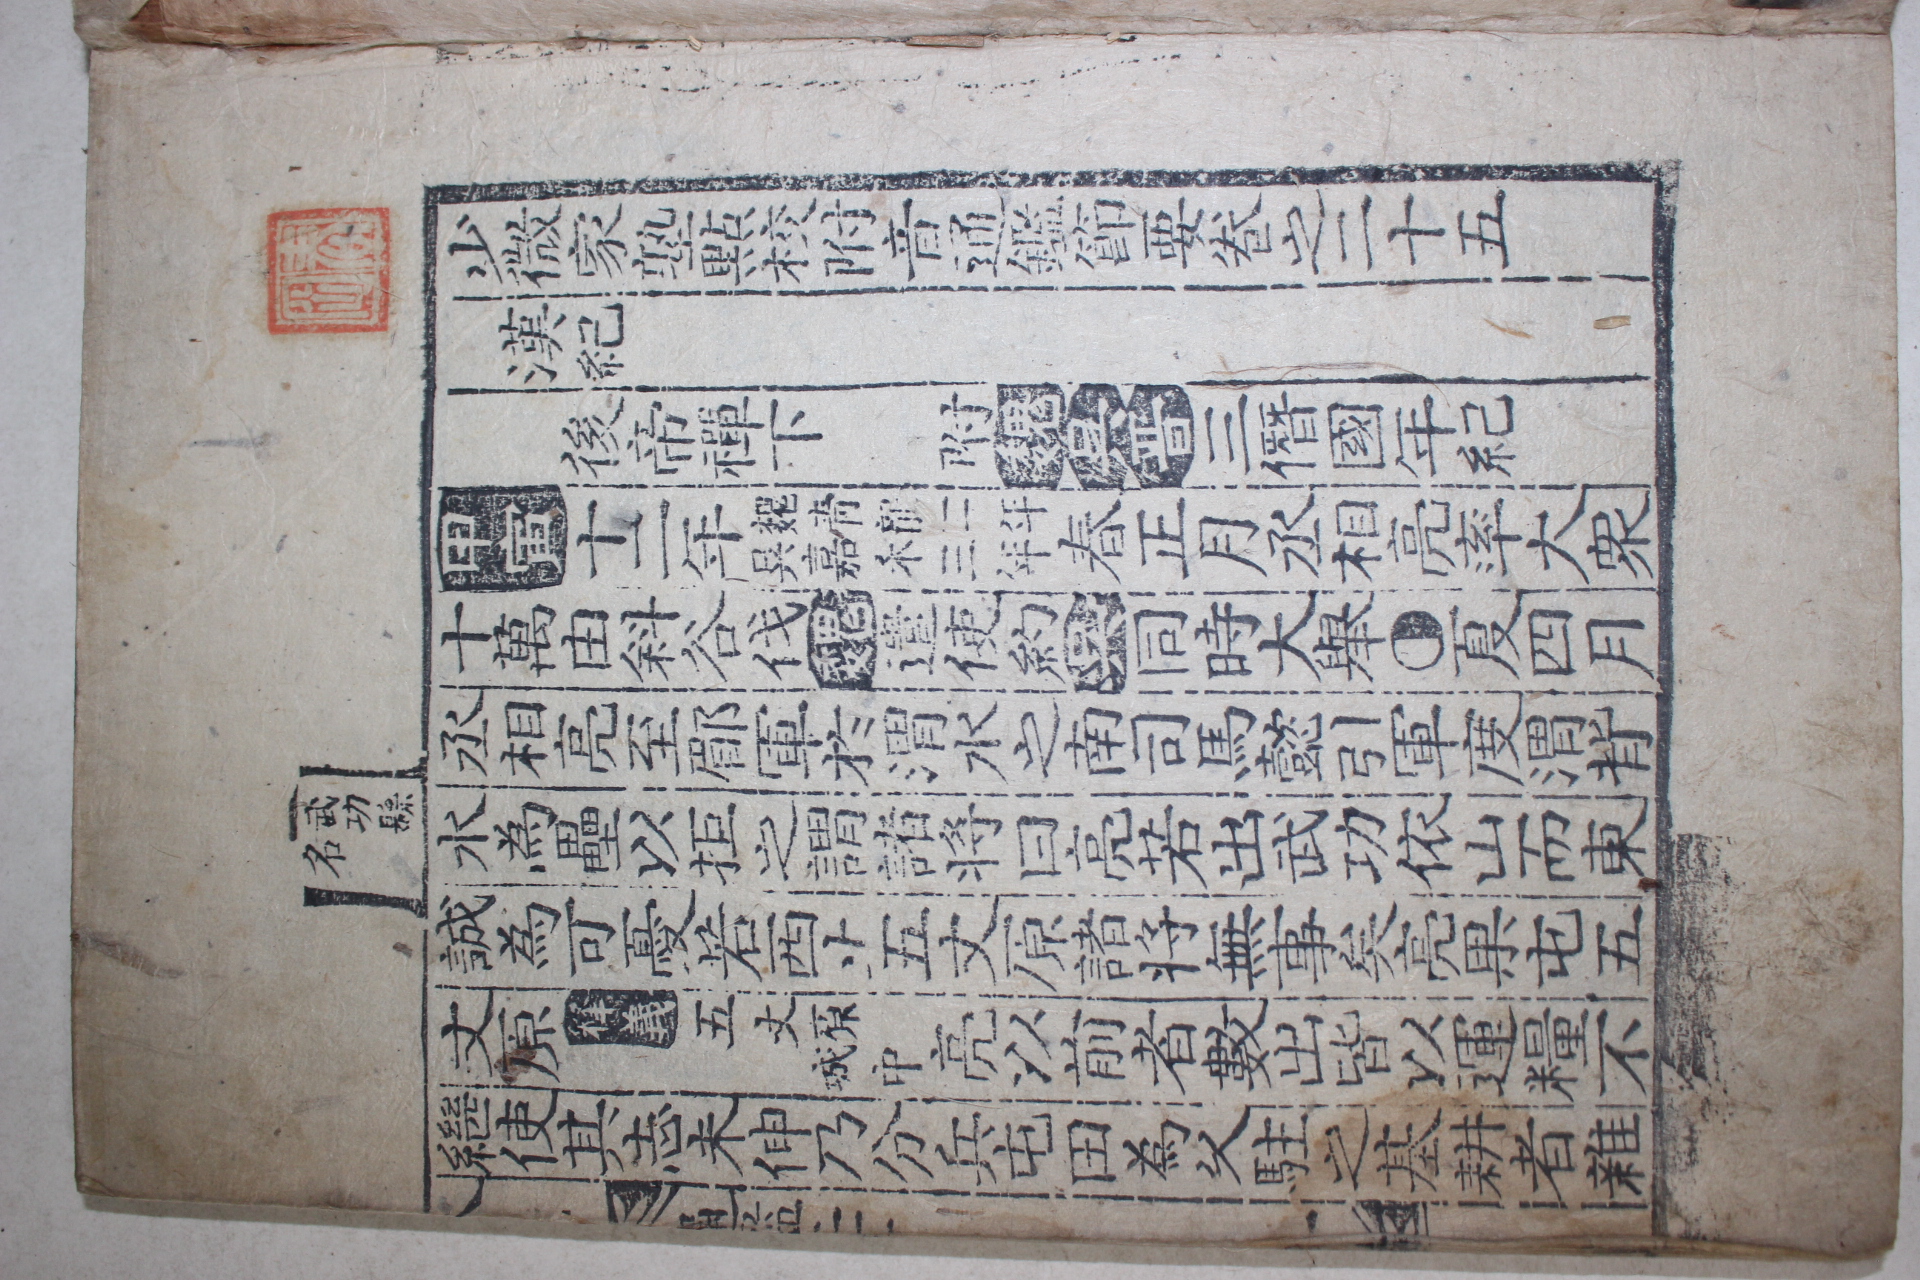 少微家塾點校附音通鑑節要卷之二十五
漢紀
後帝禪下 附魏吳晉三僭國年紀
甲寅十二年魏青龍二年吳嘉禾三年春正月丞相亮率大衆
十萬由斜谷伐魏遣使約吳同時大擧夏四月
丞相亮至郿軍於渭水之南司馬懿引軍度渭背
水為壘以拒之謂諸將曰亮若出武功依山而東
誠為可憂若西上五丈原諸將無事矣亮果屯五
丈原 五丈原城中亮以前者數出皆以運糧不
繼使其志不伸乃分兵屯田為久駐之基耕者雜
武功縣名